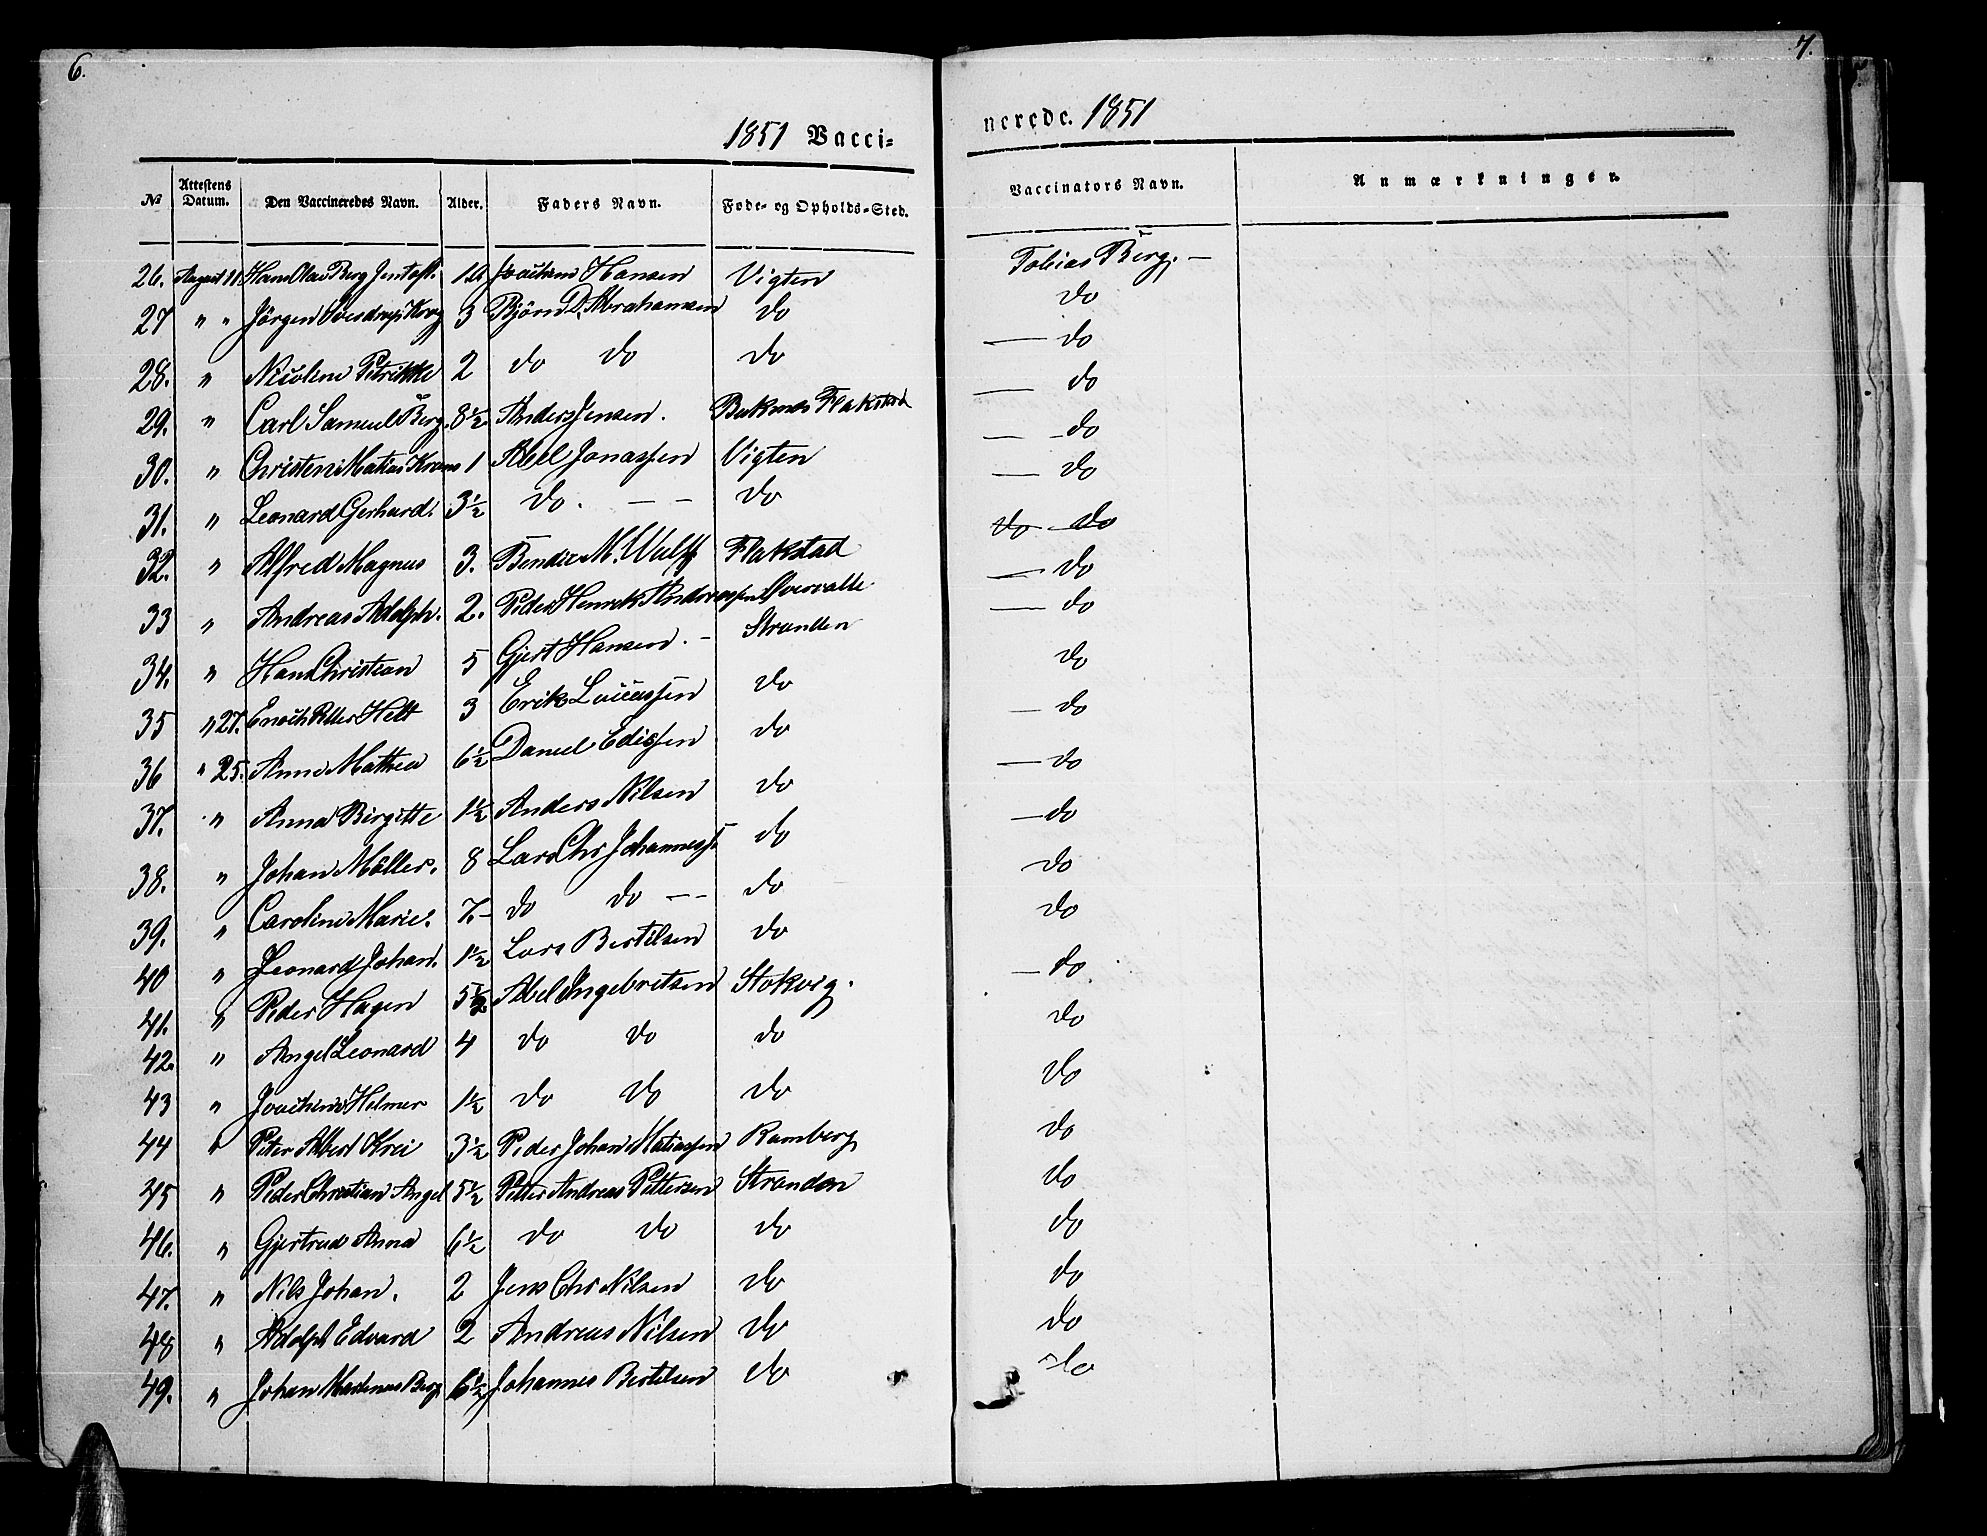 6. 7.
1851 Vacci= nerede. 1851
№ Attestens Datum. Den Vaccineredes Navn. Alder. Faders Navn. Føde- og Opholds-Sted. Vaccinators Navn. Anmærkninger.
26. August Hans Olai Berg Jentoft. Joachim Hansen Vigten Tobias Berg. —
27 " " Jörgen Krog 3 Björn D. Abrahamsen do do
28. " Nicoline Petrikke 2 do do do — do
29. " Carl Samuel Berg. 8½ Anders Jensen. Buknes Flakstad — do
30. " Christen Matias Krane 1 Abel Jonassen Vigten — do
31. " Leonard Gerhard. 3½ do. — — do — do
32. " Alfred Magnus 3. Bendix M. Wulff Flakstad do do
33 " Andreas Adolph. 2. Peder Henrik Andreassen — do
34. " Hans Christian 5 Gjert Hansen. — Stranden — do
35 " 27. Enoch Petter Helt 3 Erik Lucassen do do
36 " 25. Anne Mathea 6½ Daniel Edissen do — do
37. " Anna Birgitte 1½ Anders Nilsen do — do
38. " Johan Möller. 8 Lars Chr Johanness. do — do
39. " Caroline Marie. 7. — do do — — do do
40 " Leonard Johan. 1½ Lars Bertilsen do do
41. " Peder Hagen 5½ Abel Ingebretsen Stokvig. — do
42. " Angel Leonard 4 do do do do
43 " Joachim Helmer 1½ do do do do
44 " Peter Albert Krei 3½ Peder Johan Matiassen Ramberg do
45 " Peder Christian Angel 5½ Petter Andreas Pettersen Stranden do
46. " Gjertrud Anna 6½ do do do do
47. " Nils Johan. 2 Jens Chr Nilsen do do
48 " Adolph Edvard 2 Andreas Nilsen do do
49. " Johan Martinus Berg 6½ Johannes Bertilsen do do